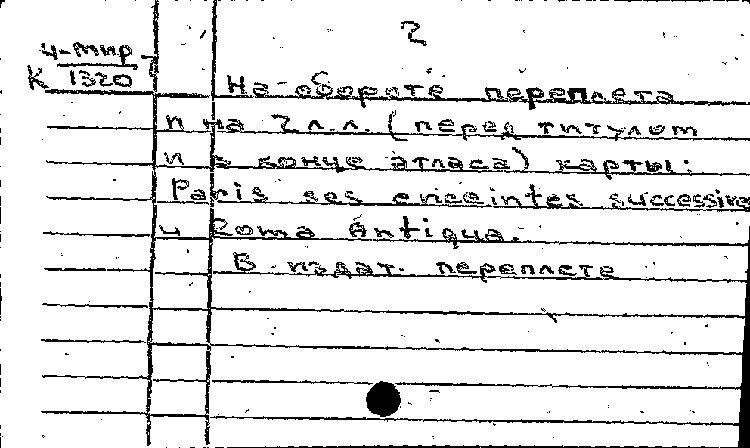 2
Ч-Мир
К 1320
На обороте переплета
и на 2 л.л. (перед титулом
и в конце атласа) карты:
Paris ses enceintes successives
и Roma Antiqua.
В издат. переплете